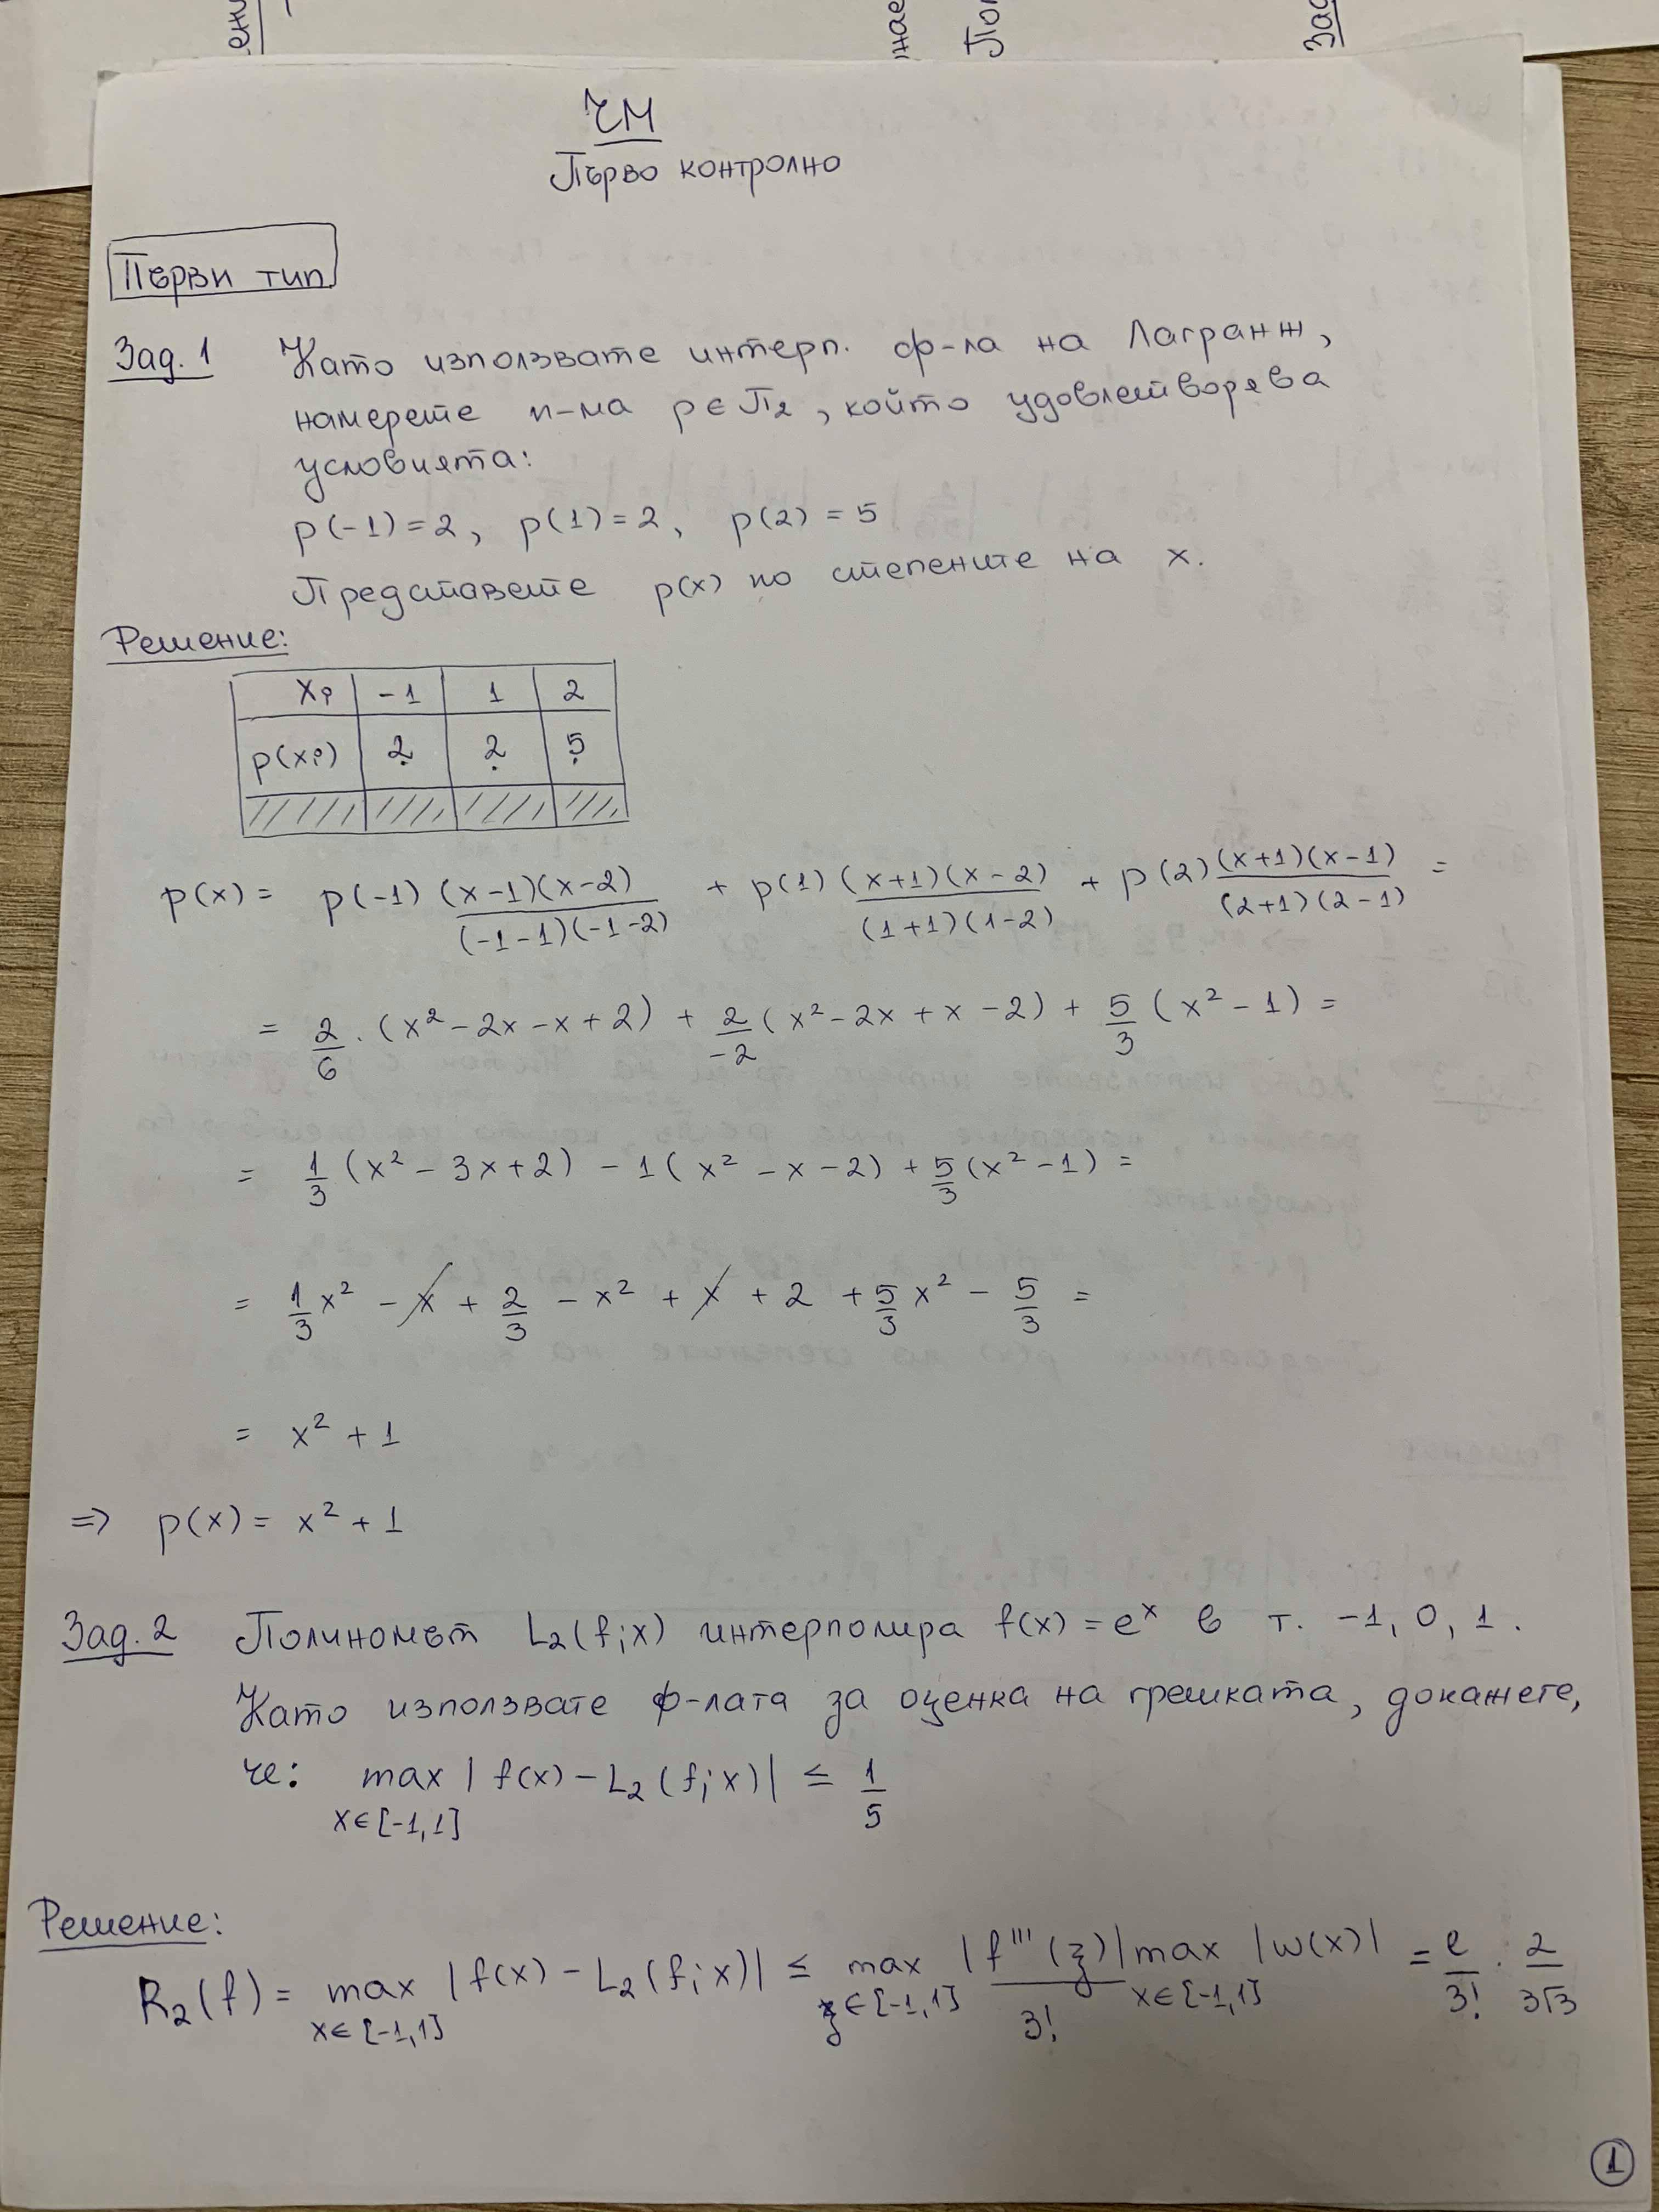 ени
нае
Пол
Зад
ЧМ
Първо контролно
Първи тип
Зад. 1 Като използвате интерп. ф-ла на Лагранж,
намерете п-ма p ∈ П₂, който удовлетворява
условията:
p(-1) = 2, p(1) = 2, p(2) = 5
Представете p(x) по степените на x.
Решение:
xi | -1 | 1 | 2
p(xi) | 2 | 2 | 5
p(x) = p(-1) (x-1)(x-2)/(-1-1)(-1-2) + p(1) (x+1)(x-2)/(1+1)(1-2) + p(2) (x+1)(x-1)/(2+1)(2-1) =
= 2/6 . (x² - 2x - x + 2) + 2/-2 (x² - 2x + x - 2) + 5/3 (x² - 1) =
= 1/3 (x² - 3x + 2) - 1 (x² - x - 2) + 5/3 (x² - 1) =
= 1/3 x² - x + 2/3 - x² + x + 2 + 5/3 x² - 5/3 =
= x² + 1
=> p(x) = x² + 1
Зад. 2 Полиномът L₂(f;x) интерполира f(x) = eˣ в т. -1, 0, 1.
Като използвате ф-лата за оценка на грешката, докажете,
че: max |f(x) - L₂(f;x)| ≤ 1/5
x∈[-1,1]
Решение:
R₂(f) = max |f(x) - L₂(f;x)| ≤ max |f'''(ξ)|/3! max |w(x)| = e/3! . 2/3√3
x∈[-1,1] ξ∈[-1,1] x∈[-1,1]
1